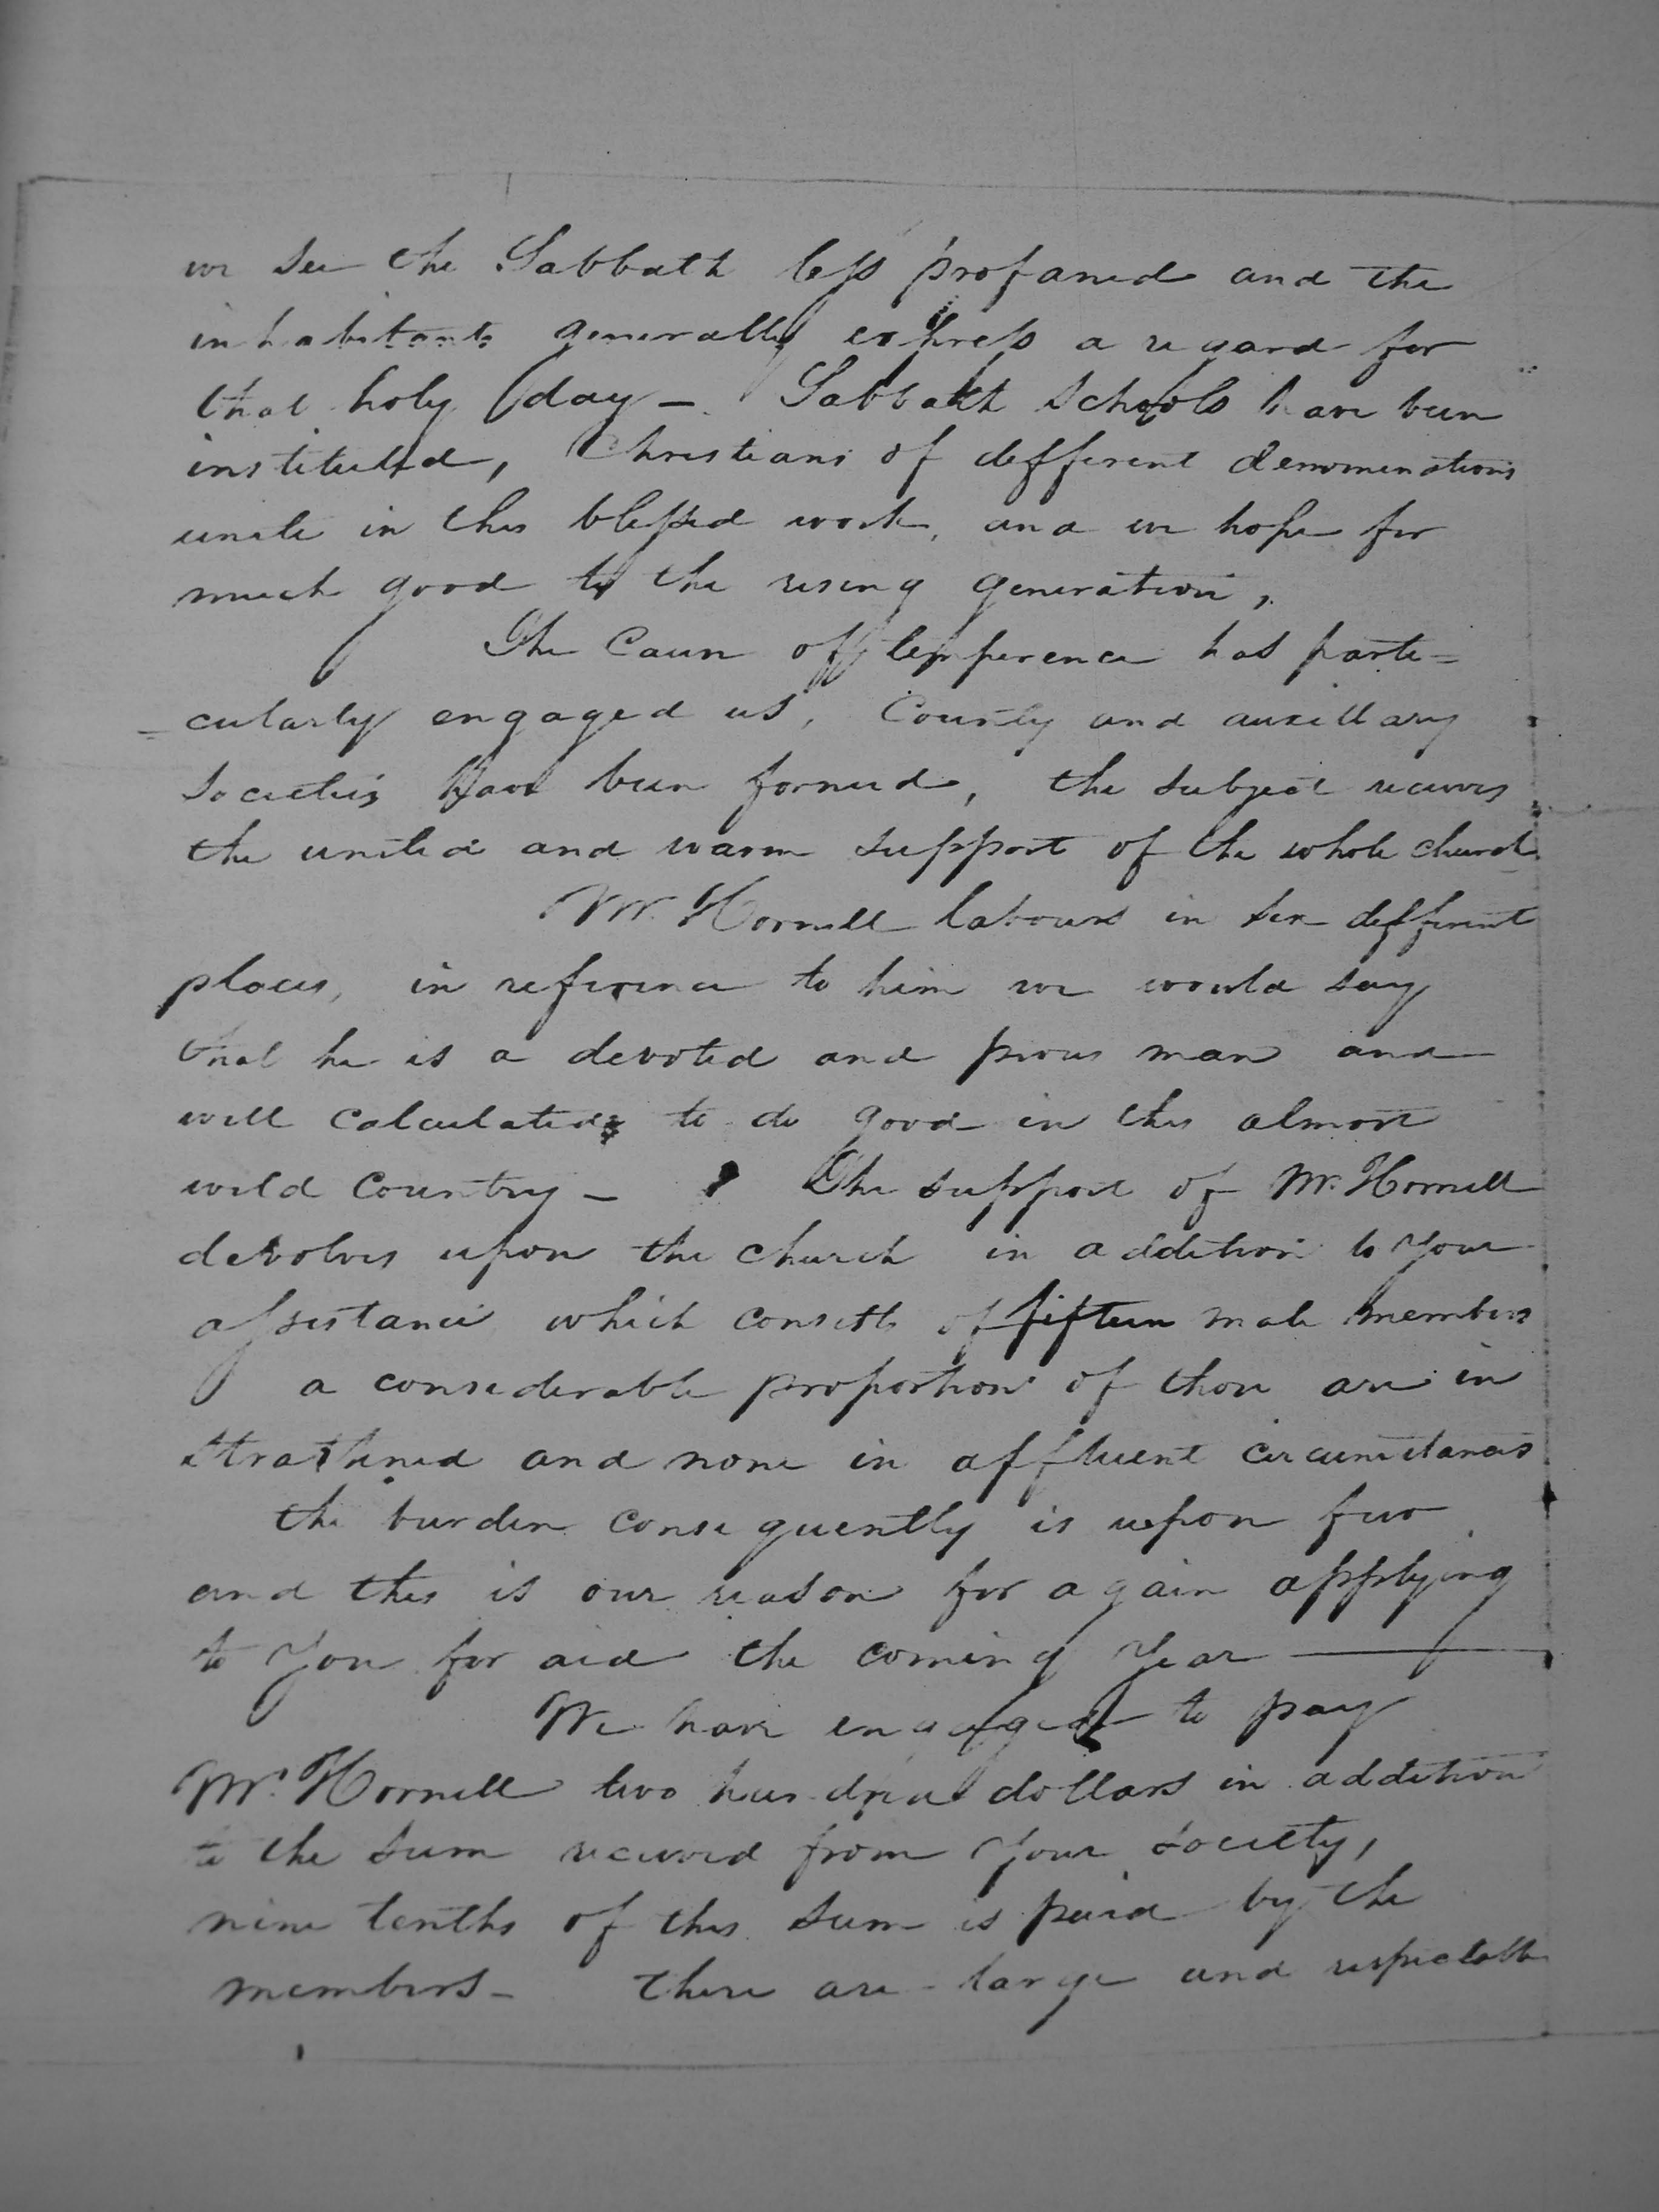 we see the Sabbath less profaned and the
inhabitants generally express a regard for
that holy day — Sabbath Schools have been
instituted, Christians of different denominations
unite in this blessed work, and we hope for
much good to the rising generation,
The Cause of temperence has parti=
=cularly engaged us, County and auxillary
Societies have been formed, the subject receives
the united and warm support of the whole church
Mr. Hornell labours in six different
places, in reference to him we would say
that he is a devoted and pious man and
well calculated to do good in this almost
wild Country — The support of Mr. Hornell
devolves upon the church in addition to your
assistance which consists of fifteen male members
a considerable proportion of those are in
straitened and none in affluent circumstances
the burden consequently is upon few
and this is our reason for again applying
to you for aid the coming year —
We have engaged to pay
Mr. Hornell two hundred dollars in addition
to the sum received from your society,
nine tenths of this sum is paid by the
members — There are large and respectable